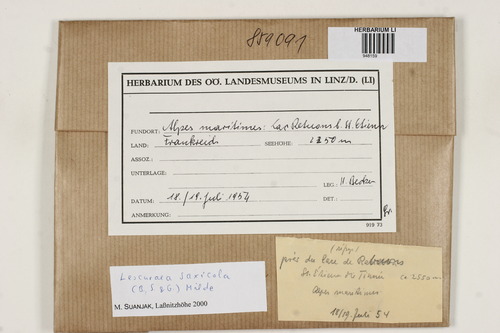 889091
HERBARIUM LI
HERBARIUM DES OÖ. LANDESMUSEUMS IN LINZ/D. (LI)
FUNDORT: Alpes maritimes: Lac Rebuons b. St. Etienne
LAND: Frankreich SEEHÖHE: 2250 m
ASSOZ.:
UNTERLAGE:
LEG.: H. Becker
DATUM: 18./19. Juli 1954 DET.:
ANMERKUNG:
919 73
Lescuraea saxicola
(B., S. & G.) Milde
M. SUANJAK, Laßnitzhöhe 2000
près du Lac de
St. Etienne de Tinée
Alpes maritimes
18/19. Juli 54